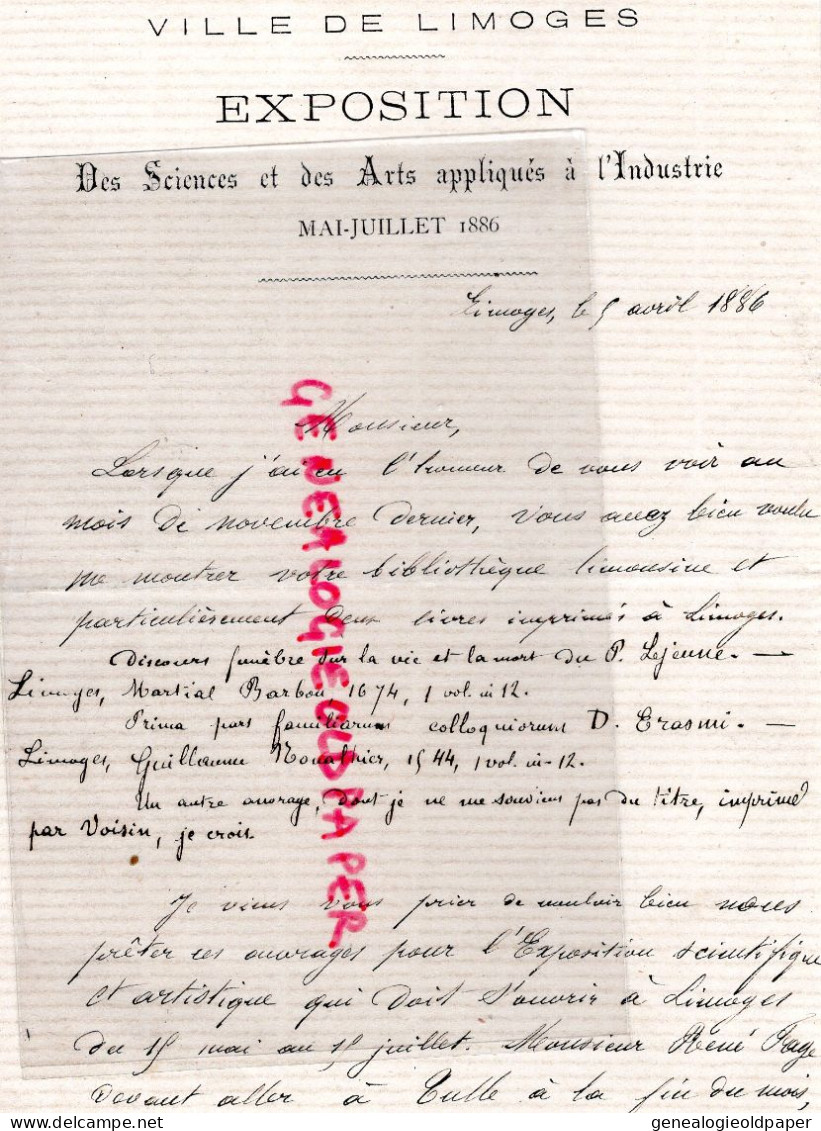 VILLE DE LIMOGES
EXPOSITION
Des Sciences et des Arts appliqués à l'Industrie
MAI-JUILLET 1886
Limoges, le 5 avril 1886
Monsieur,
Lorsque j'ai eu l'honneur de vous voir au
mois de novembre dernier, vous avez bien voulu
me montrer votre bibliothèque limousine et
particulièrement deux livres imprimés à Limoges.
Discours funèbre sur la vie et la mort du P. Lejeune. —
Limoges, Martial Barbou, 1674, 1 vol. in 12.
Prima pars familiarum colloquiorum D. Erasmi. —
Limoges, Guillaume Noualhier, 1544, 1 vol. in-12.
Un autre ouvrage, dont je ne me souviens pas du titre, imprimé
par Voisin, je crois.
Je viens vous prier de vouloir bien nous
prêter ces ouvrages pour l'Exposition scientifique
et artistique qui doit s'ouvrir à Limoges
du 15 mai au 15 juillet. Monsieur René Fage
devant aller à Tulle à la fin du mois,
GENEALOGIEOLDPAPER
genealogieoldpaper